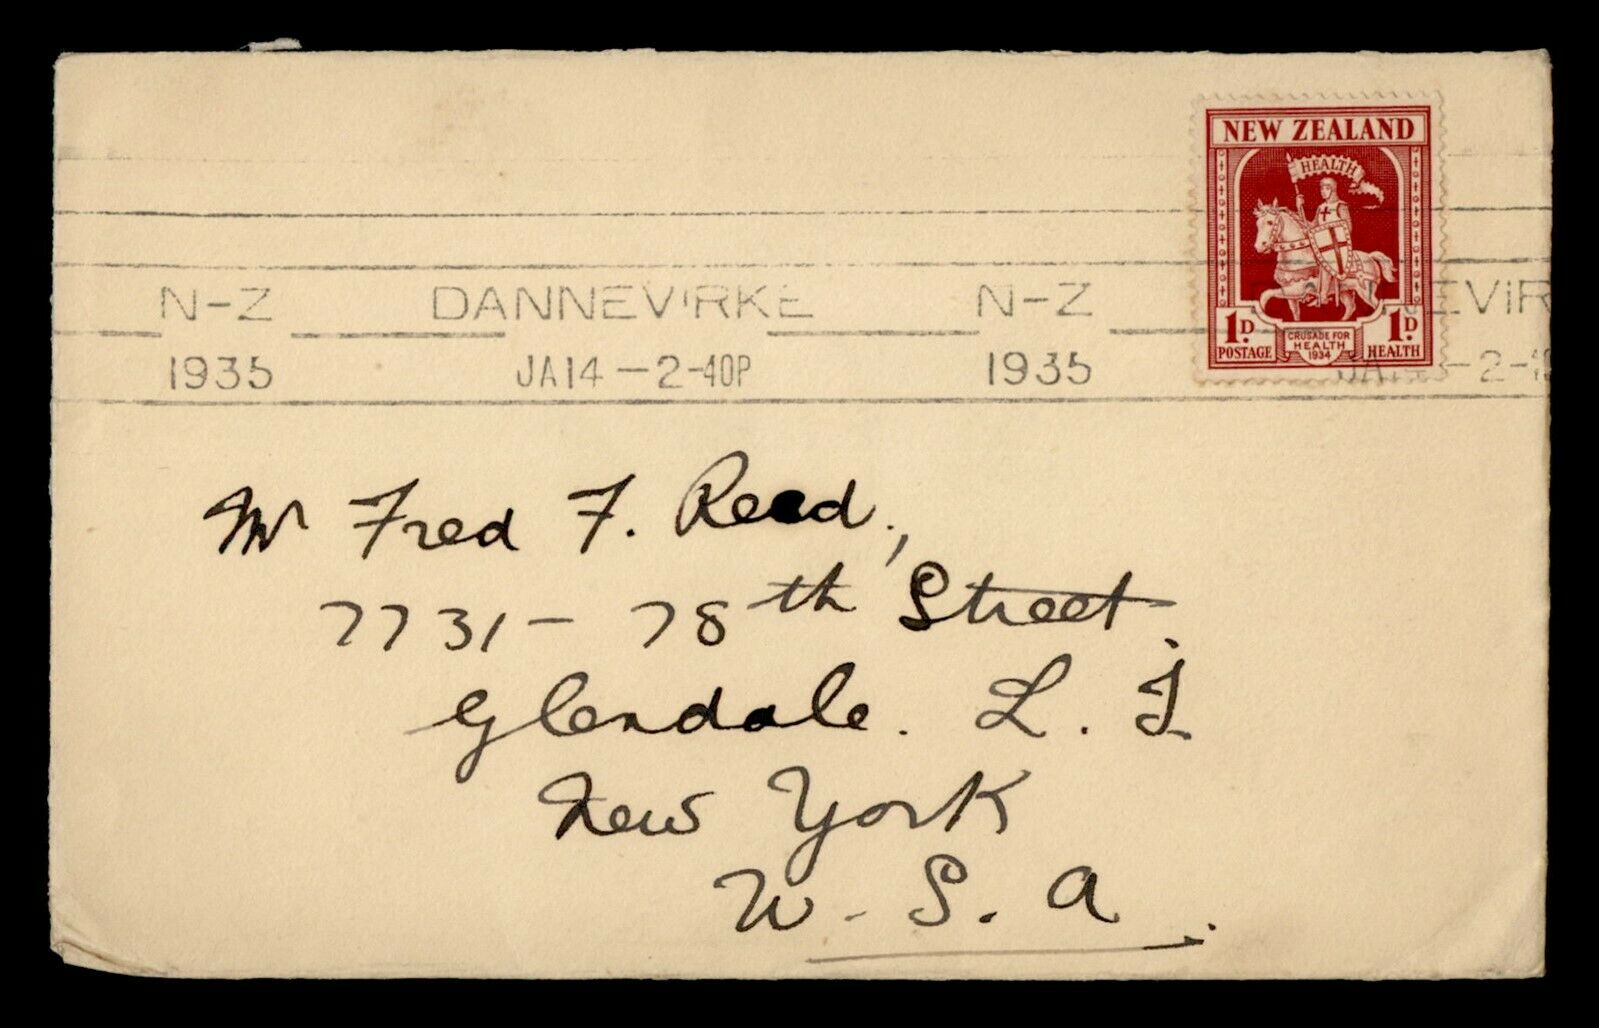 NEW ZEALAND
HEALTH
1D. 1D.
POSTAGE CRUSADE FOR HEALTH 1934 HEALTH
N-Z DANNEVIRKE N-Z EVIR
1935 JA14-2-40P 1935 JA14-2-4
Mr Fred F. Reed,
7731- 78th Street.
Glendale. L. I
New York
U.S.A.